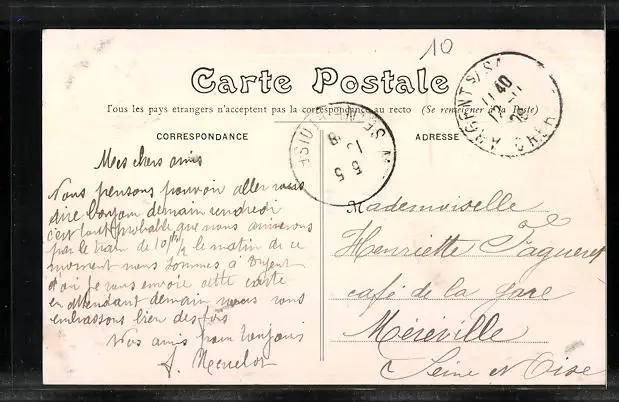 10
Carte Postale
Tous les pays étrangers n'acceptent pas la correspondance au recto (Se renseigner à la Poste)
CORRESPONDANCE
ADRESSE
ARGENT S/ SA
CHER
11 40
SEINE ET OISE
Mes chers amis
Nous pensons pouvoir aller vous
dire bonjour demain vendredi
c'est tout probable que nous arriverons
par le train de 10h 1/2 le matin de ce
moment nous sommes à Argent
d'où je vous envoie cette carte
en attendant demain nous vous
embrassons bien des fois
Vos amis pour toujours
Mademoiselle
Henriette
café de la gare
Méréville
Seine et Oise